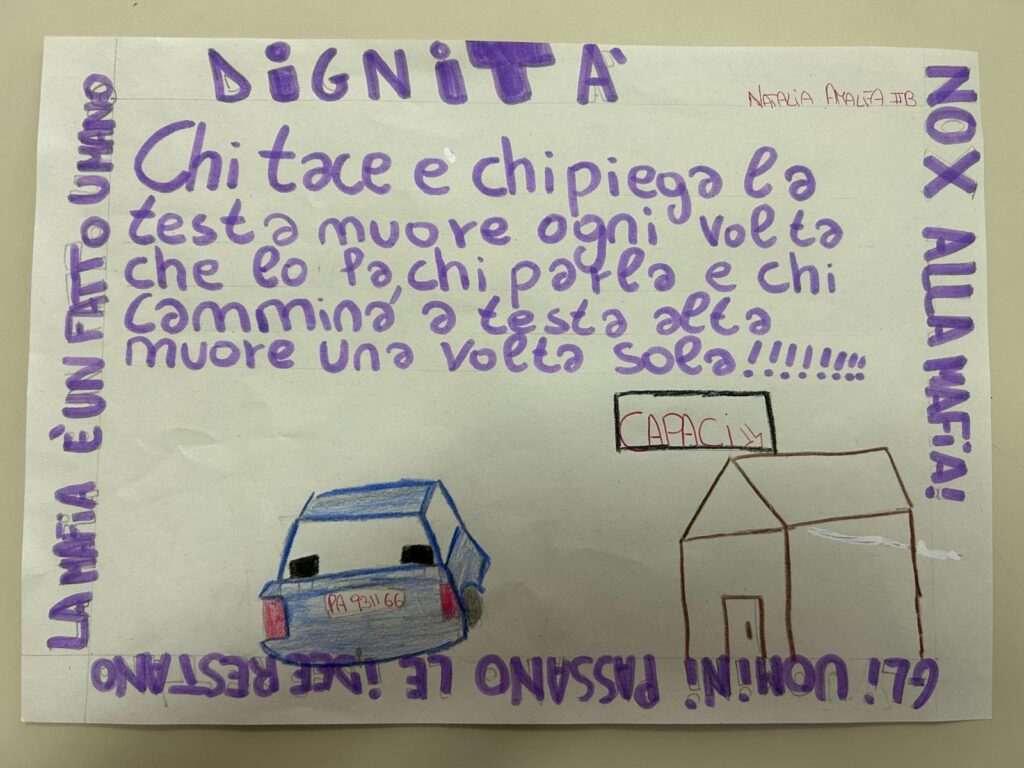 DiGNiTÀ
NATALIA AMALFA IIB
Chi tace e chi piega la
testa muore ogni volta
che lo fa, chi parla e chi
cammina a testa alta
muore una volta sola!!!!!!!!
NO X ALLA MAFiA!
CAPACi
PA 931166
GLi UOMiNi PASSANO LE iDEE RESTANO
LA MAFiA È UN FATTO UMANO